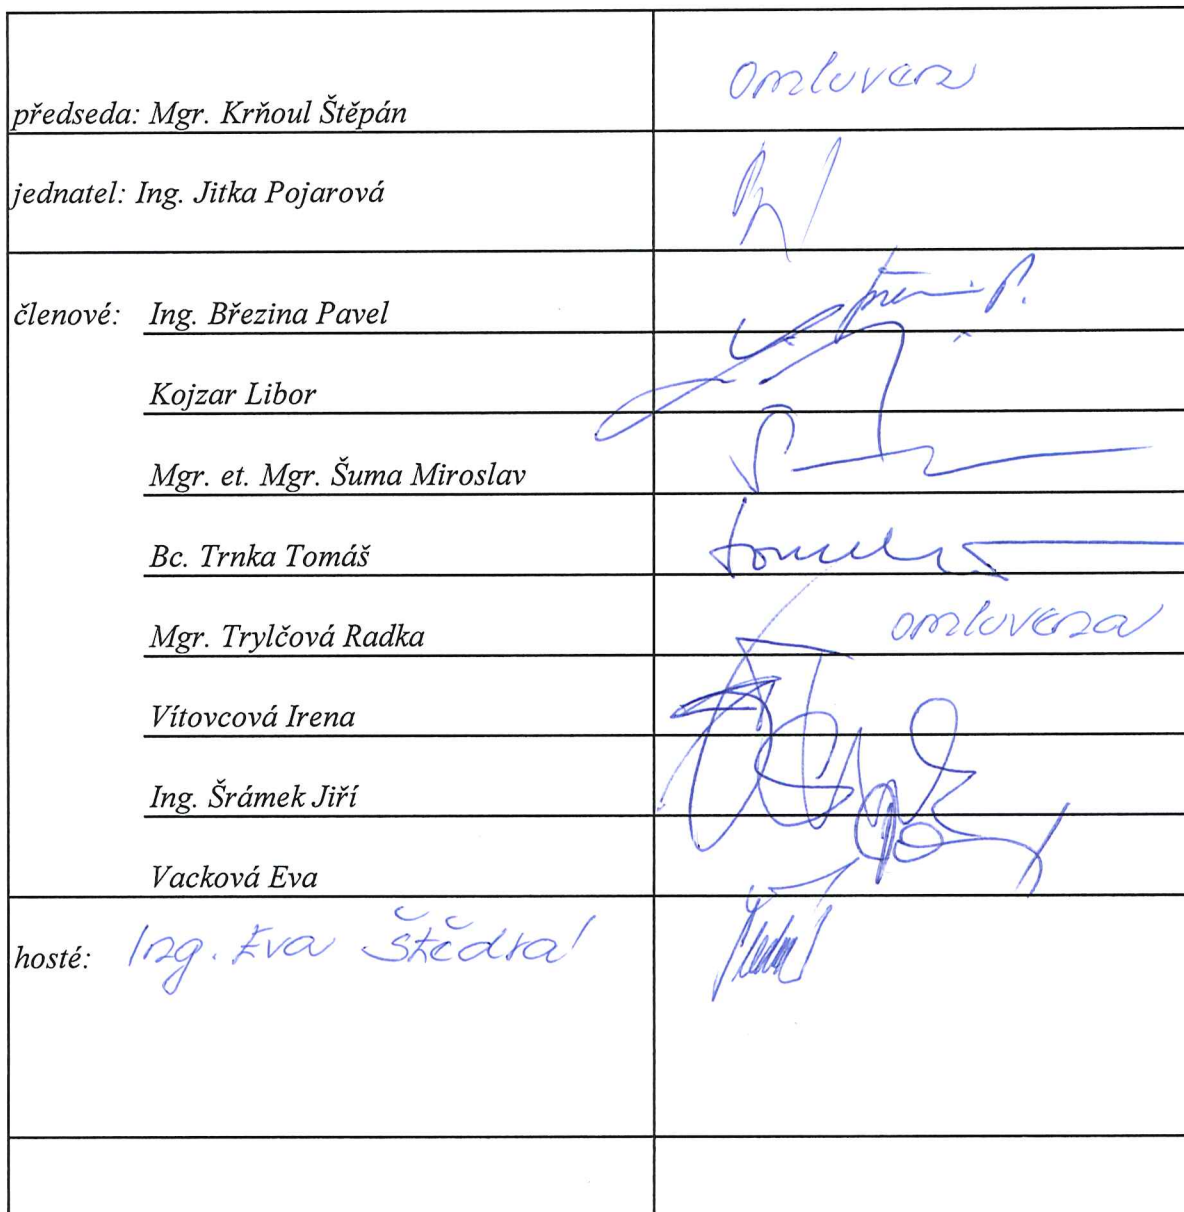 předseda: Mgr. Krňoul Štěpán omluven
jednatel: Ing. Jitka Pojarová
členové: Ing. Březina Pavel
Kojzar Libor
Mgr. et. Mgr. Šuma Miroslav
Bc. Trnka Tomáš
Mgr. Trylčová Radka omluvena
Vítovcová Irena
Ing. Šrámek Jiří
Vacková Eva
hosté: Ing. Eva Štědrá